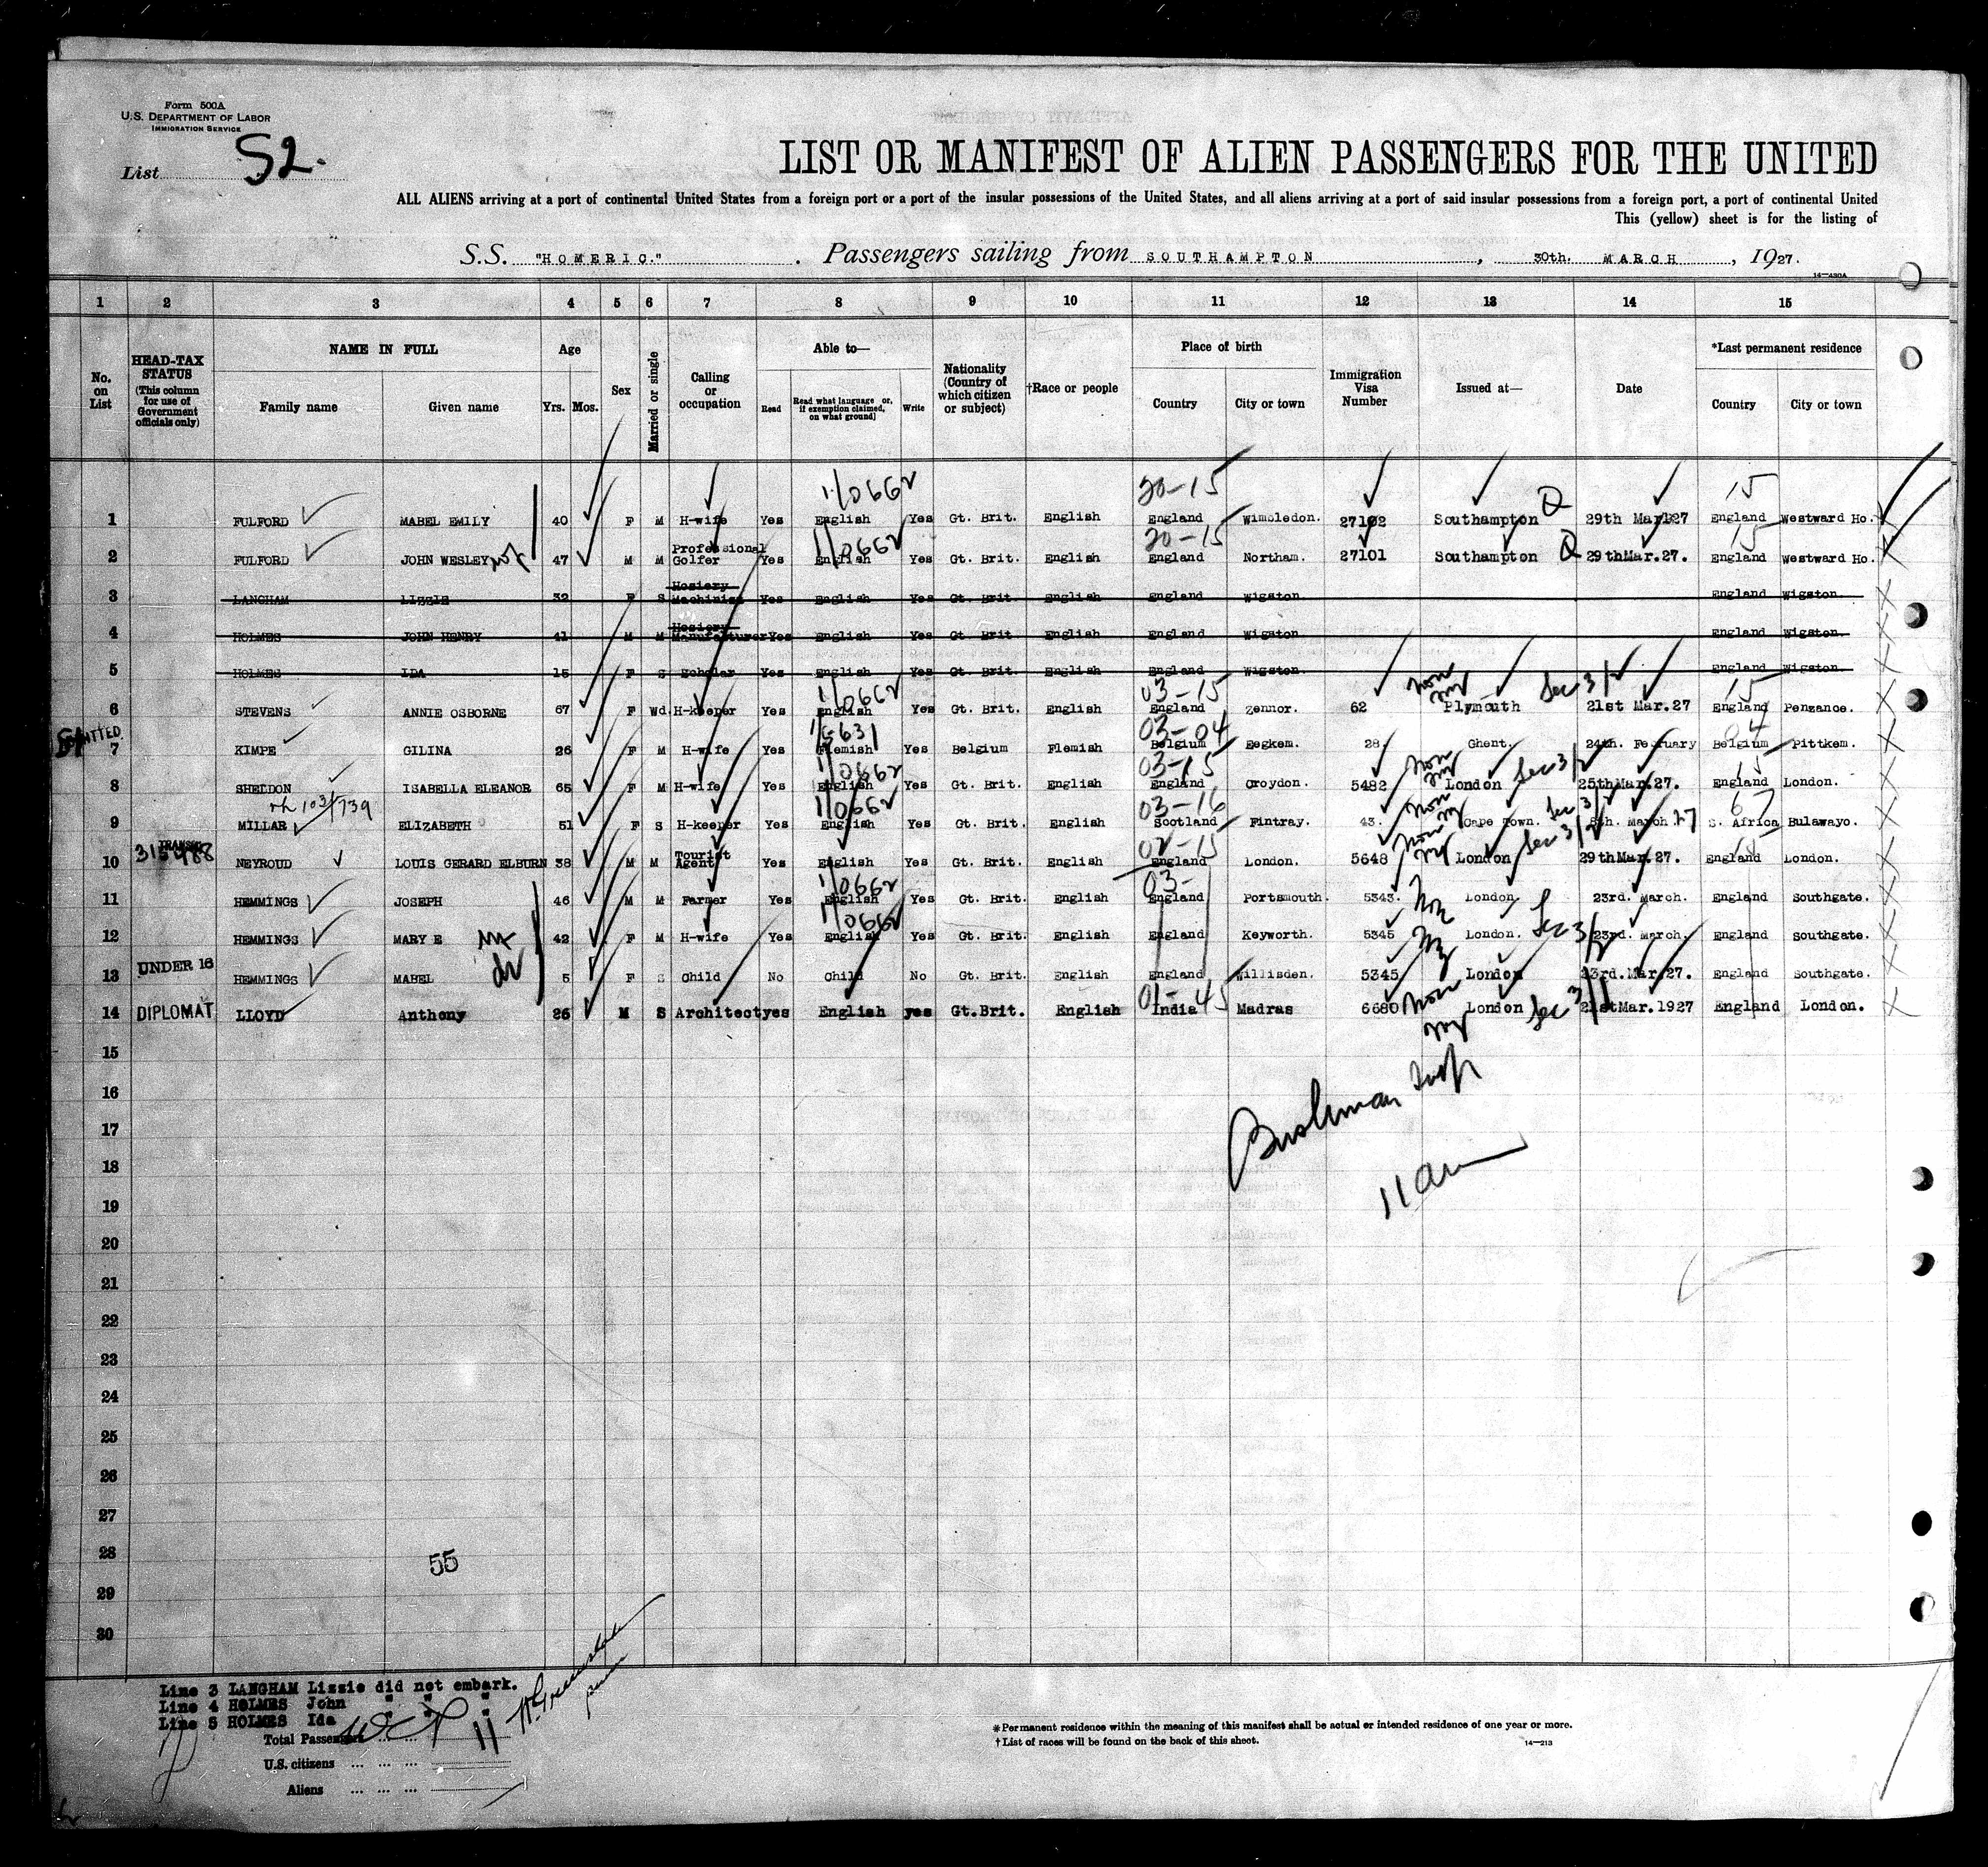 Form 500A
U.S. DEPARTMENT OF LABOR
IMMIGRATION SERVICE
List 52.
LIST OR MANIFEST OF ALIEN PASSENGERS FOR THE UNITED
ALL ALIENS arriving at a port of continental United States from a foreign port or a port of the insular possessions of the United States, and all aliens arriving at a port of said insular possessions from a foreign port, a port of continental United
This (yellow) sheet is for the listing of
S.S. "HOMERIC." . Passengers sailing from SOUTHAMPTON , 30th. MARCH , 1927.
14—430A
1 2 3 4 5 6 7 8 9 10 11 12 13 14 15
No. on List
HEAD-TAX STATUS (This column for use of Government officials only)
NAME IN FULL
Family name Given name
Age
Yrs. Mos.
Sex
Married or single
Calling or occupation
Able to—
Read Read what language or, if exemption claimed, on what ground] Write
Nationality (Country of which citizen or subject)
†Race or people
Place of birth
Country City or town
Immigration Visa Number
Issued at—
Date
*Last permanent residence
Country City or town
1/0662 20-15 15
1 FULFORD MABEL EMILY 40 F M H-wife Yes English Yes Gt. Brit. English England Wimbledon. 27102 Southampton Q 29th Mar.27 England Westward Ho.
1/0662 20-15 15
2 FULFORD JOHN WESLEY 47 M M Professional Golfer Yes English Yes Gt. Brit. English England Northam. 27101 Southampton Q 29thMar.27. England Westward Ho.
3 LANGHAM LIZZIE 32 F S Hosiery Machinist Yes English Yes Gt. Brit English England Wigston England Wigston.
4 HOLMES JOHN HENRY 41 M M Hosiery Manufacturer Yes English Yes Gt. Brit English England Wigston England Wigston.
5 HOLMES IDA 15 F S Scholar Yes English Yes Gt. Brit English England Wigston England Wigston.
1/0662 03-15 non im Sec 3/2 15
6 STEVENS ANNIE OSBORNE 67 F Wd. H-keeper Yes English Yes Gt. Brit. English England Zennor. 62 Plymouth 21st Mar.27 England Penzance.
ADMITTED 1/5631 03-04 04
7 KIMPE GILINA 26 F M H-wife Yes Flemish Yes Belgium Flemish Belgium Eegkem. 28. Ghent. 24th. February Belgium Pittkem.
1/0662 03-15 non im Sec 3/2 15
8 SHELDON ISABELLA ELEANOR 65 F M H-wife Yes English Yes Gt. Brit. English England Croydon. 5482 London 25thMar.27. England London.
103/739 1/0662 03-16 Sec 3/2 67
9 MILLAR ELIZABETH 51 F S H-keeper Yes English Yes Gt. Brit. English Scotland Fintray. 43. Cape Town. 8th. March 27 S. Africa Bulawayo.
TRANSIT 315488 02-15 Sec 3/2 15
10 NEYROUD LOUIS GERARD ELBURN 38 M M Tourist Agent Yes English Yes Gt. Brit. English England London. 5648 London 29thMar.27. England London.
1/0662 03-
11 HEMMINGS JOSEPH 46 M M Farmer Yes English Yes Gt. Brit. English England Portsmouth. 5343. London 23rd. March. England Southgate.
1/0662 non Sec 3/2
12 HEMMINGS MARY E 42 F M H-wife Yes English Yes Gt. Brit. English England Keyworth. 5345 London. 23rd. March. England Southgate.
13 UNDER 16 HEMMINGS MABEL 5 F S Child No Child No Gt. Brit. English England Willisden. 5345 London 23rd.Mar.27. England Southgate.
01-45 non im Sec 3/1
14 DIPLOMAT LLOYD Anthony 26 M S Architect yes English yes Gt.Brit. English India Madras 6680 London 21stMar.1927 England London.
15
16
Bushman Insp
17
18
11 am
19
20
21
22
23
24
25
26
27
28
55
29
30
Line 3 LANGHAM Lizzie did not embark.
Line 4 HOLMES John " " "
Line 5 HOLMES Ida " " "
Total Passengers ... ... 11
U.S. citizens ... ... ...
Aliens ... ... ...
*Permanent residence within the meaning of this manifest shall be actual or intended residence of one year or more.
†List of races will be found on the back of this sheet.
14—213